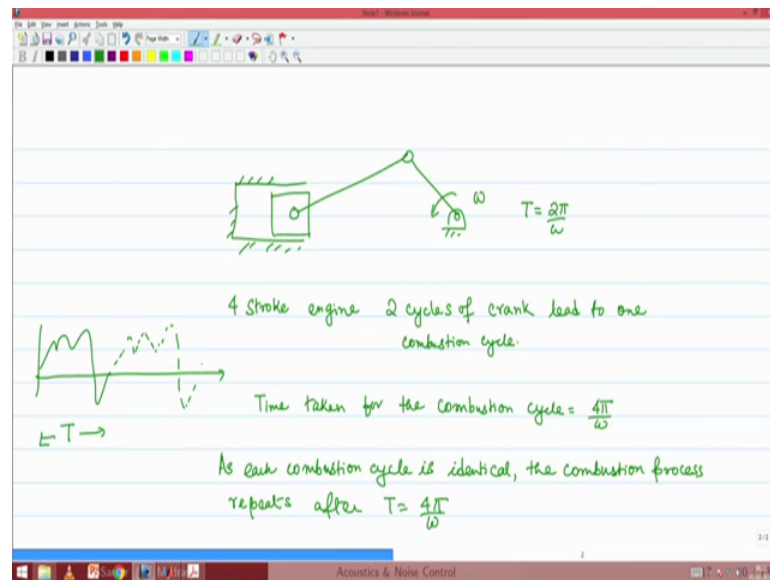 Note1 - Windows Journal
File Edit View Insert Actions Tools Help
Page Width
B I
ω
T = 2π/ω
4 Stroke engine 2 cycles of crank lead to one
combustion cycle.
Time taken for the combustion cycle = 4π/ω
← T →
As each combustion cycle is identical, the combustion process
repeats after T = 4π/ω
2/2
2
Acoustics & Noise Control